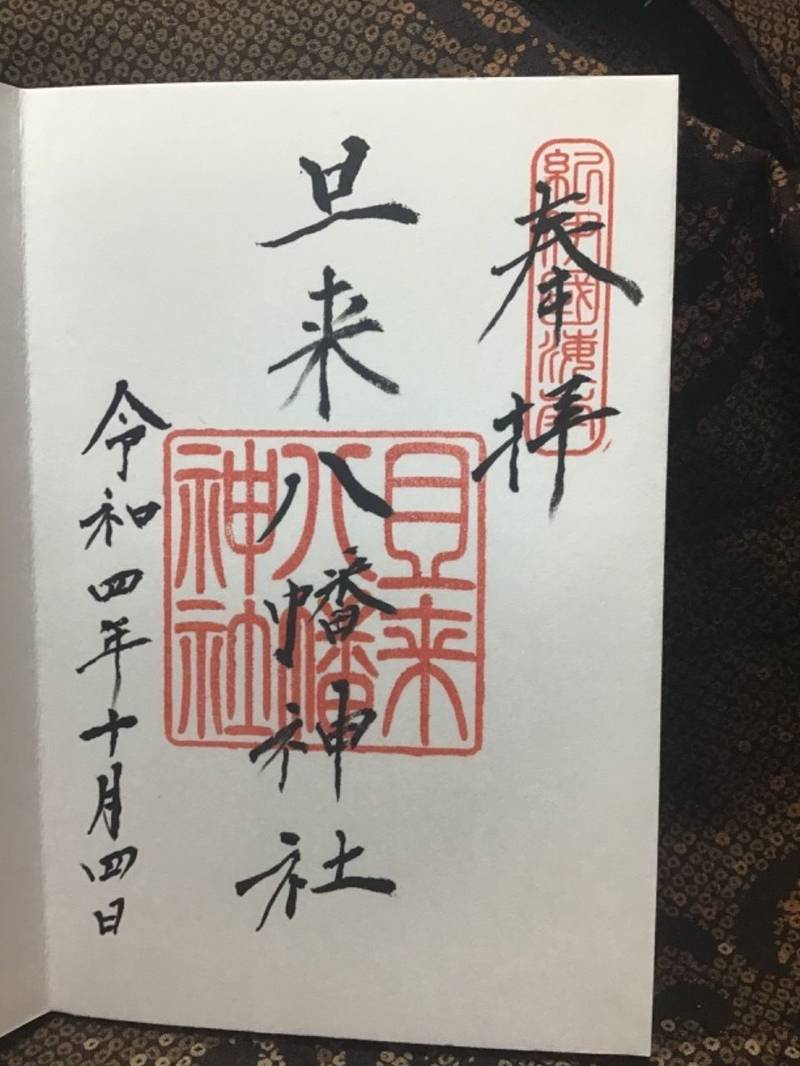 奉拝
紀伊國海南
旦来八幡神社
旦来
八幡
神社
令和四年十月四日